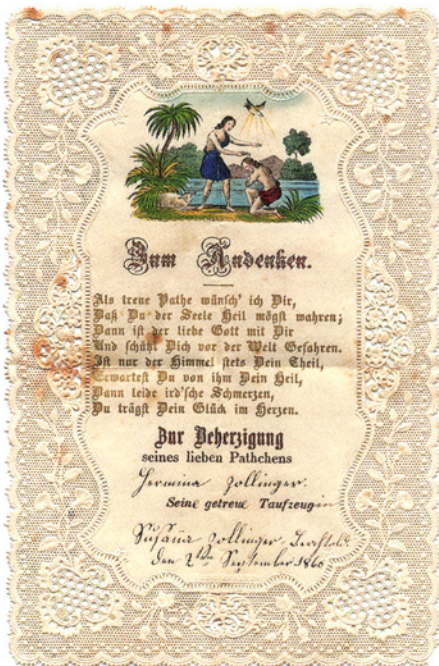 Zum Andenken.
Als treue Pathe wünsch' ich Dir,
Daß Du der Seele Heil mögst wahren;
Dann ist der liebe Gott mit Dir
Und schützt Dich vor der Welt Gefahren.
Ist nur der Himmel stets Dein Theil,
Erwartest Du von ihm Dein Heil,
Dann leide ird'sche Schmerzen,
Du trägst Dein Glück im Herzen.
Zur Beherzigung
seines lieben Pathchens
Hermina Zollinger.
Seine getreue Taufzeugin
Susana Zollinger
den 2ten September 1860